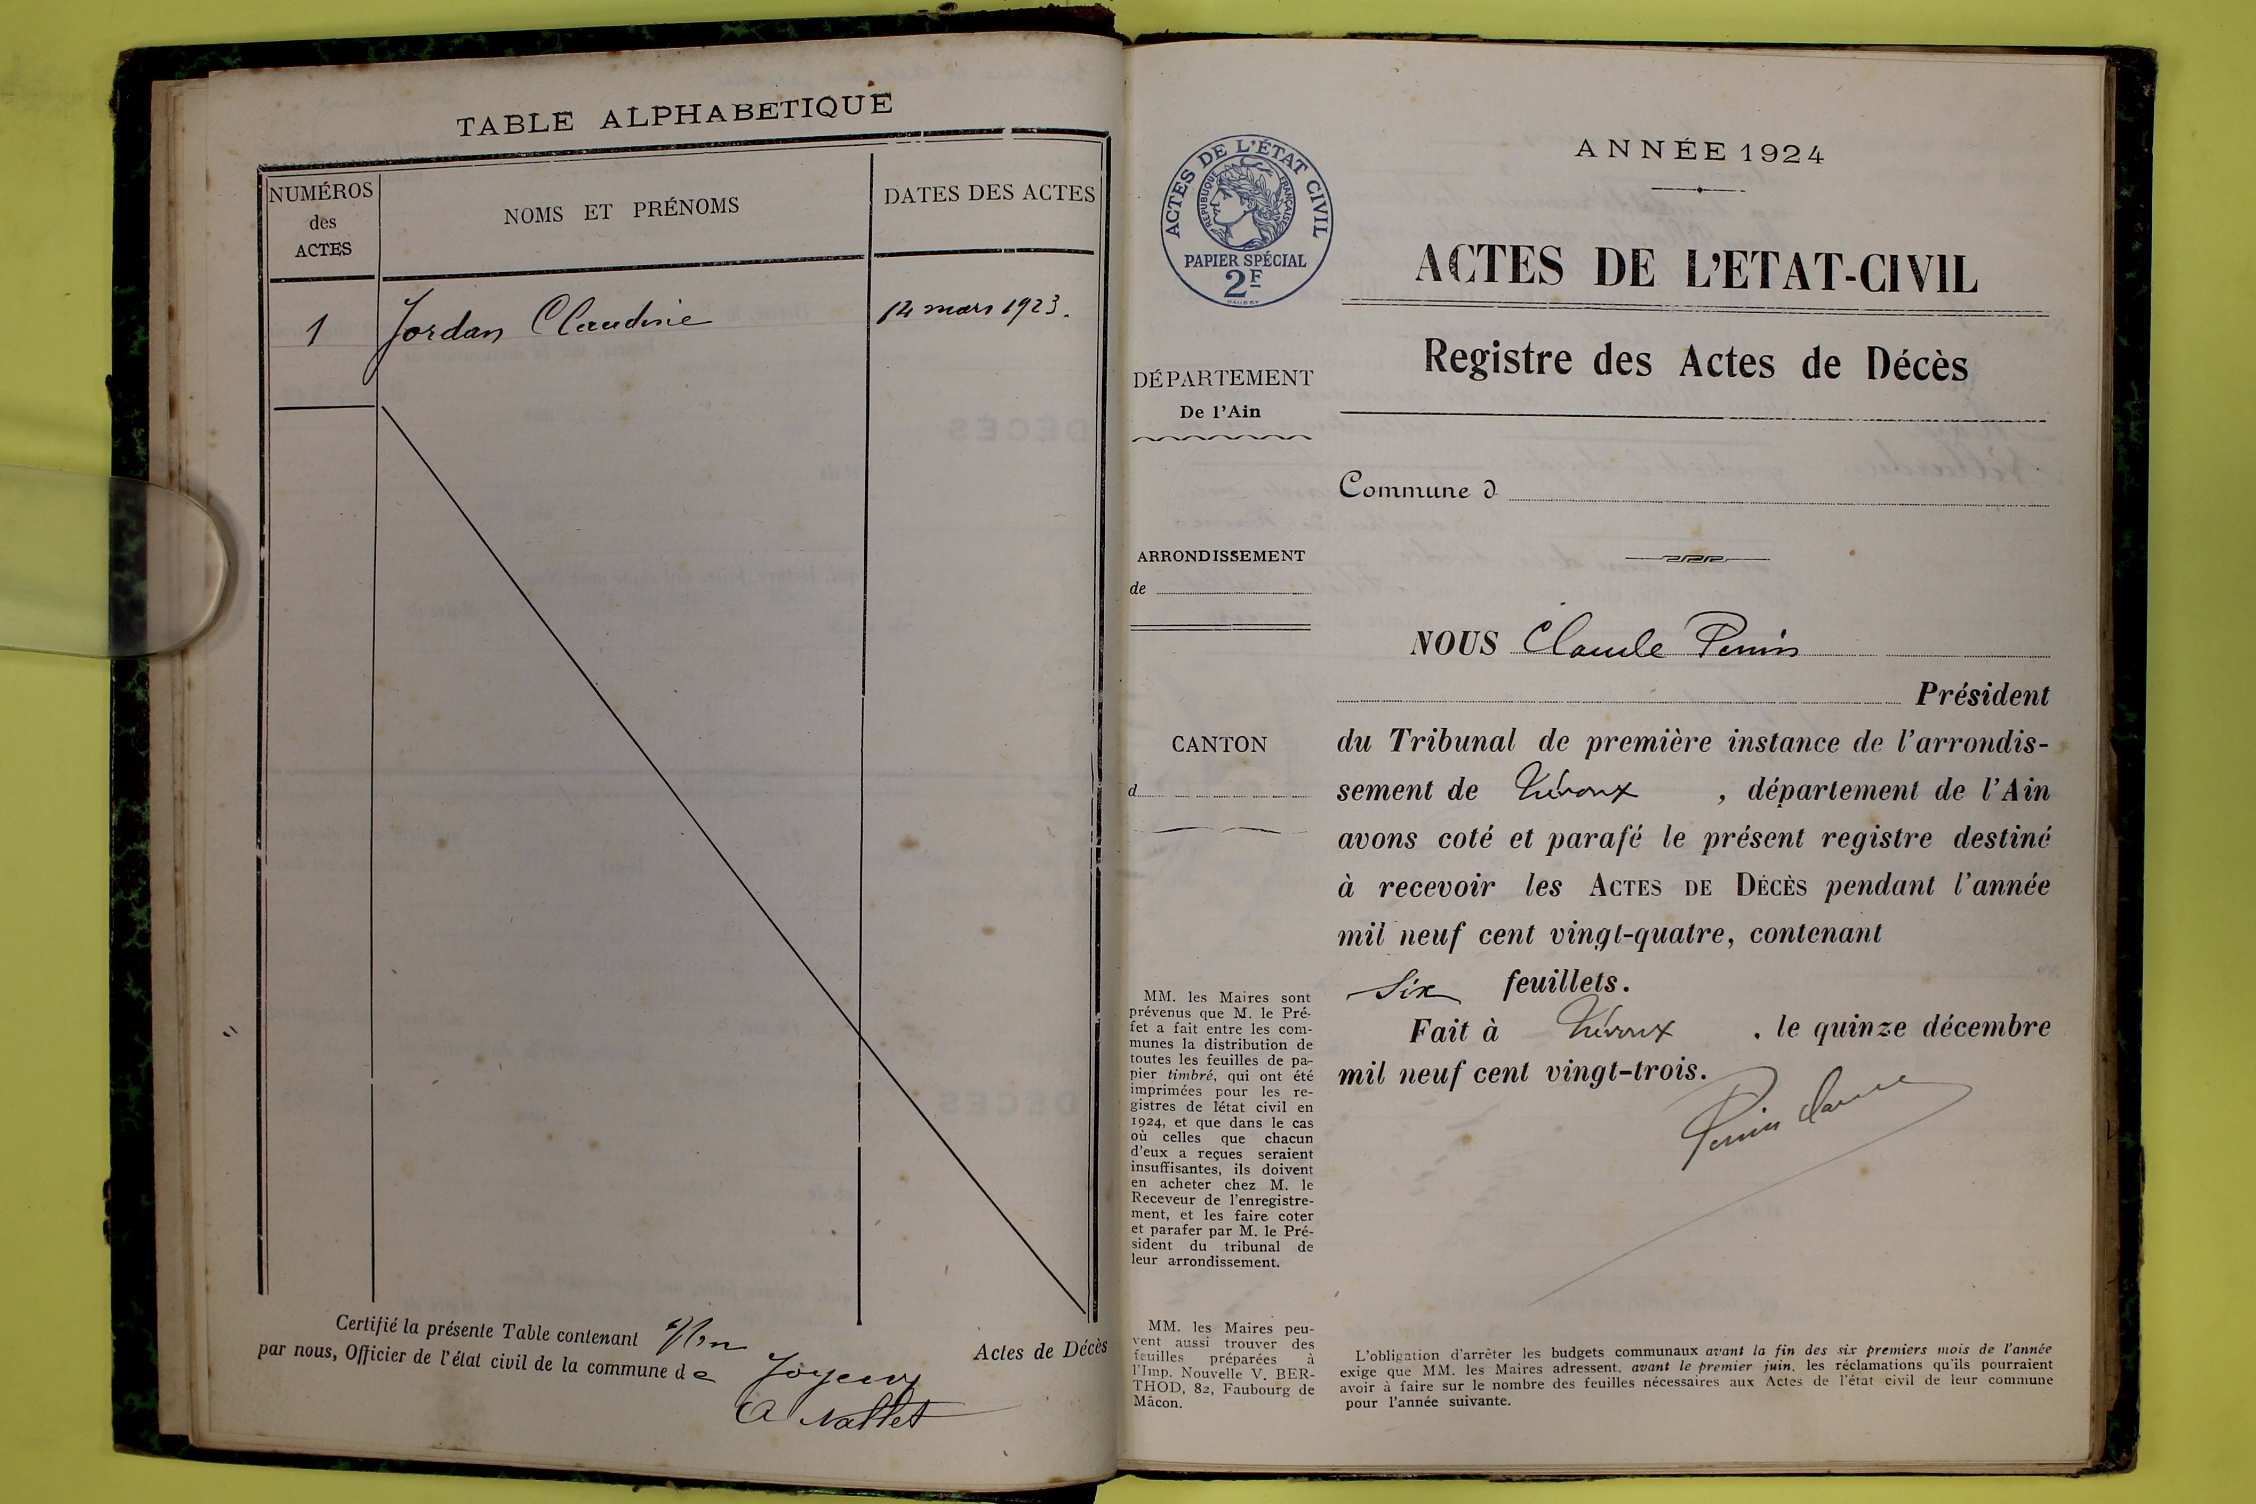 TABLE ALPHABETIQUE
NUMÉROS
des
ACTES
NOMS ET PRÉNOMS
DATES DES ACTES
1 Jordan Claudine 14 mars 1923.
Certifié la présente Table contenant Un Actes de Décès
par nous, Officier de l'état civil de la commune de Joyeux
A Nallet
ACTES DE L'ÉTAT CIVIL
RÉPUBLIQUE FRANÇAISE
PAPIER SPÉCIAL
2F
DÉPARTEMENT
De l'Ain
ARRONDISSEMENT
de
CANTON
d
MM. les Maires sont
prévenus que M. le Pré-
fet a fait entre les com-
munes la distribution de
toutes les feuilles de pa-
pier timbré, qui ont été
imprimées pour les re-
gistres de létat civil en
1924, et que dans le cas
où celles que chacun
d'eux a reçues seraient
insuffisantes, ils doivent
en acheter chez M. le
Receveur de l'enregistre-
ment, et les faire coter
et parafer par M. le Pré-
sident du tribunal de
leur arrondissement.
MM. les Maires peu-
vent aussi trouver des
feuilles préparées à
l'Imp. Nouvelle V. BER-
THOD, 82, Faubourg de
Mâcon.
ANNÉE 1924
ACTES DE L'ETAT-CIVIL
Registre des Actes de Décès
Commune d
NOUS Claude Perrin
Président
du Tribunal de première instance de l'arrondis-
sement de Trévoux, département de l'Ain
avons coté et parafé le présent registre destiné
à recevoir les ACTES DE DÉCÈS pendant l'année
mil neuf cent vingt-quatre, contenant
six feuillets.
Fait à Trévoux, le quinze décembre
mil neuf cent vingt-trois.
Perrin Claude
L'obligation d'arrêter les budgets communaux avant la fin des six premiers mois de l'année
exige que MM. les Maires adressent, avant le premier juin, les réclamations qu'ils pourraient
avoir à faire sur le nombre des feuilles nécessaires aux Actes de l'état civil de leur commune
pour l'année suivante.